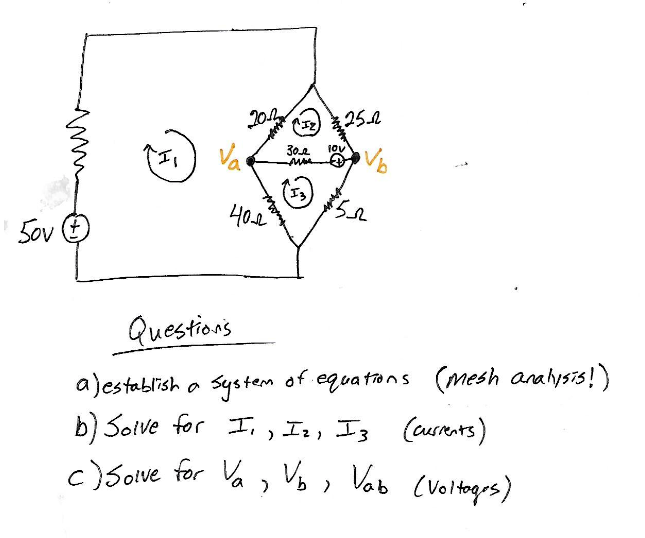 20Ω
I2
25Ω
I1
Va
30Ω
10V
Vb
I3
40Ω
5Ω
50V
Questions
a) establish a system of equations (mesh analysis!)
b) Solve for I1, I2, I3 (currents)
c) Solve for Va, Vb, Vab (Voltages)